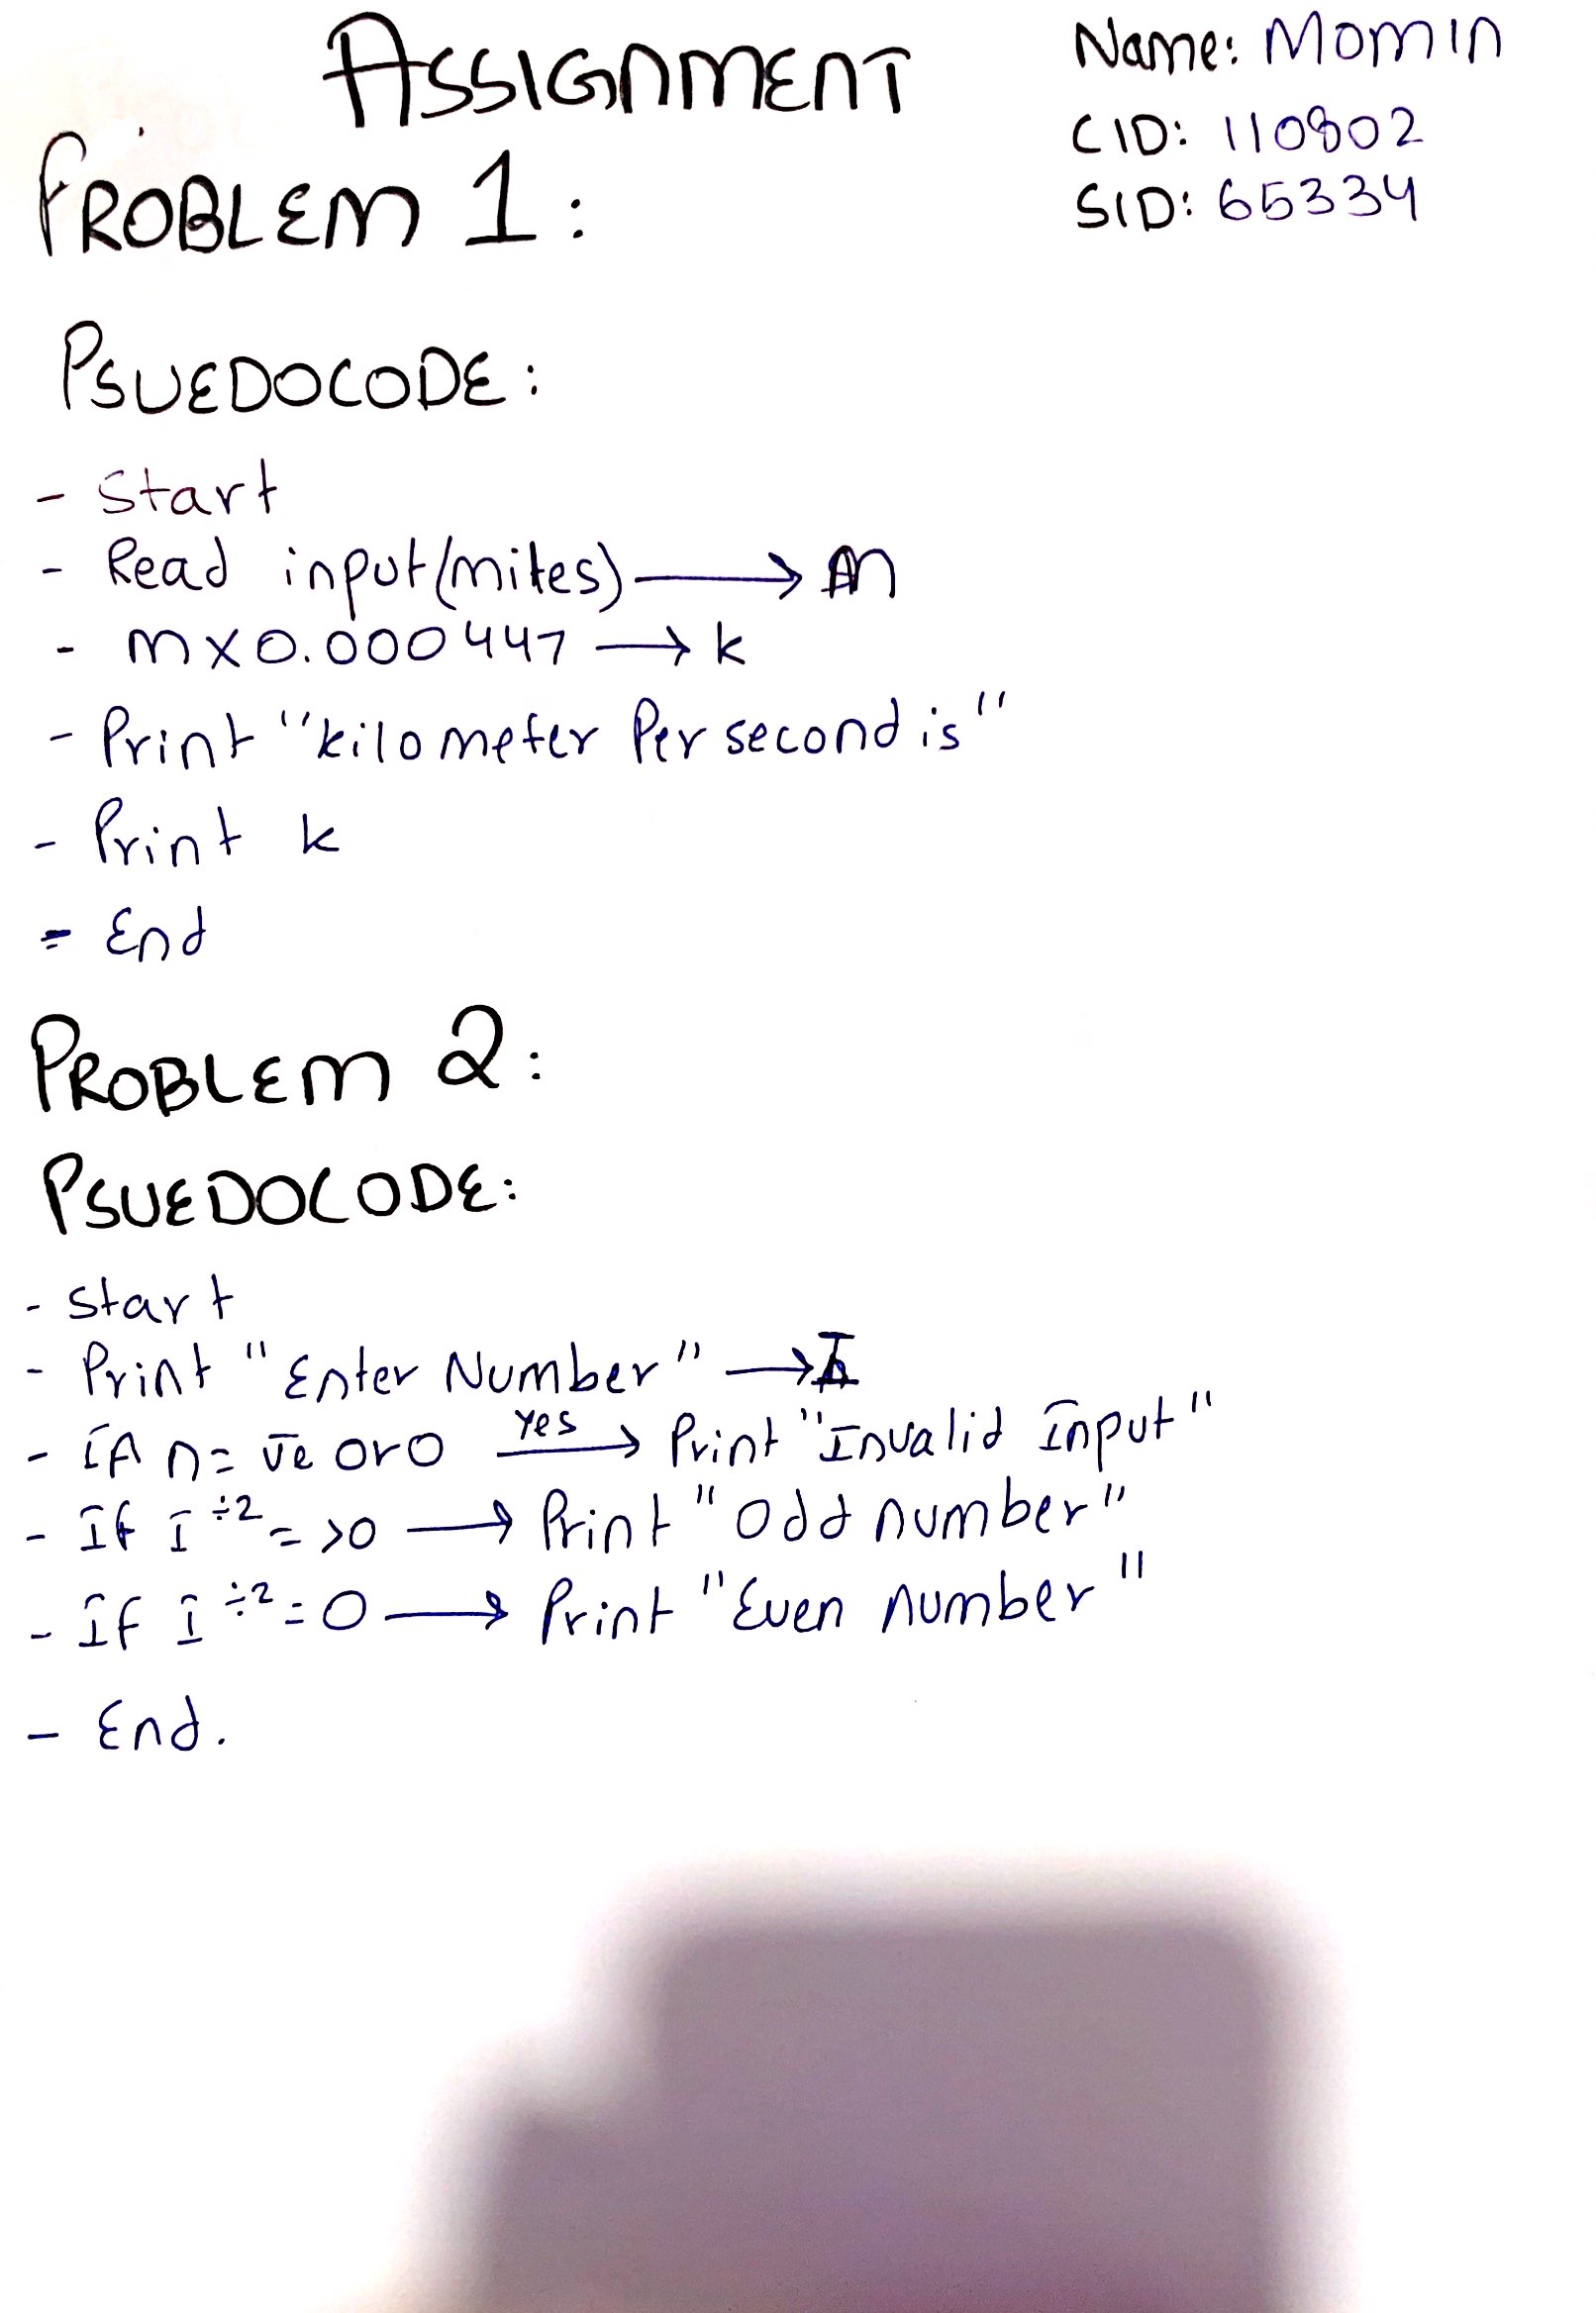 ASSIGNMENT
Name: Momin
CID: 110802
SID: 65334
PROBLEM 1:
PSUEDOCODE:
- Start
- Read input(miles) → m
- m x 0.000447 → k
- Print "kilometer Per second is"
- Print k
- End
PROBLEM 2:
PSUEDOCODE:
- Start
- Print "Enter Number" → I
- If n = v̄e or 0 yes → Print "Invalid Input"
- If I ÷2 = >0 → Print "Odd number"
- If I ÷2 = 0 → Print "Even number"
- End.